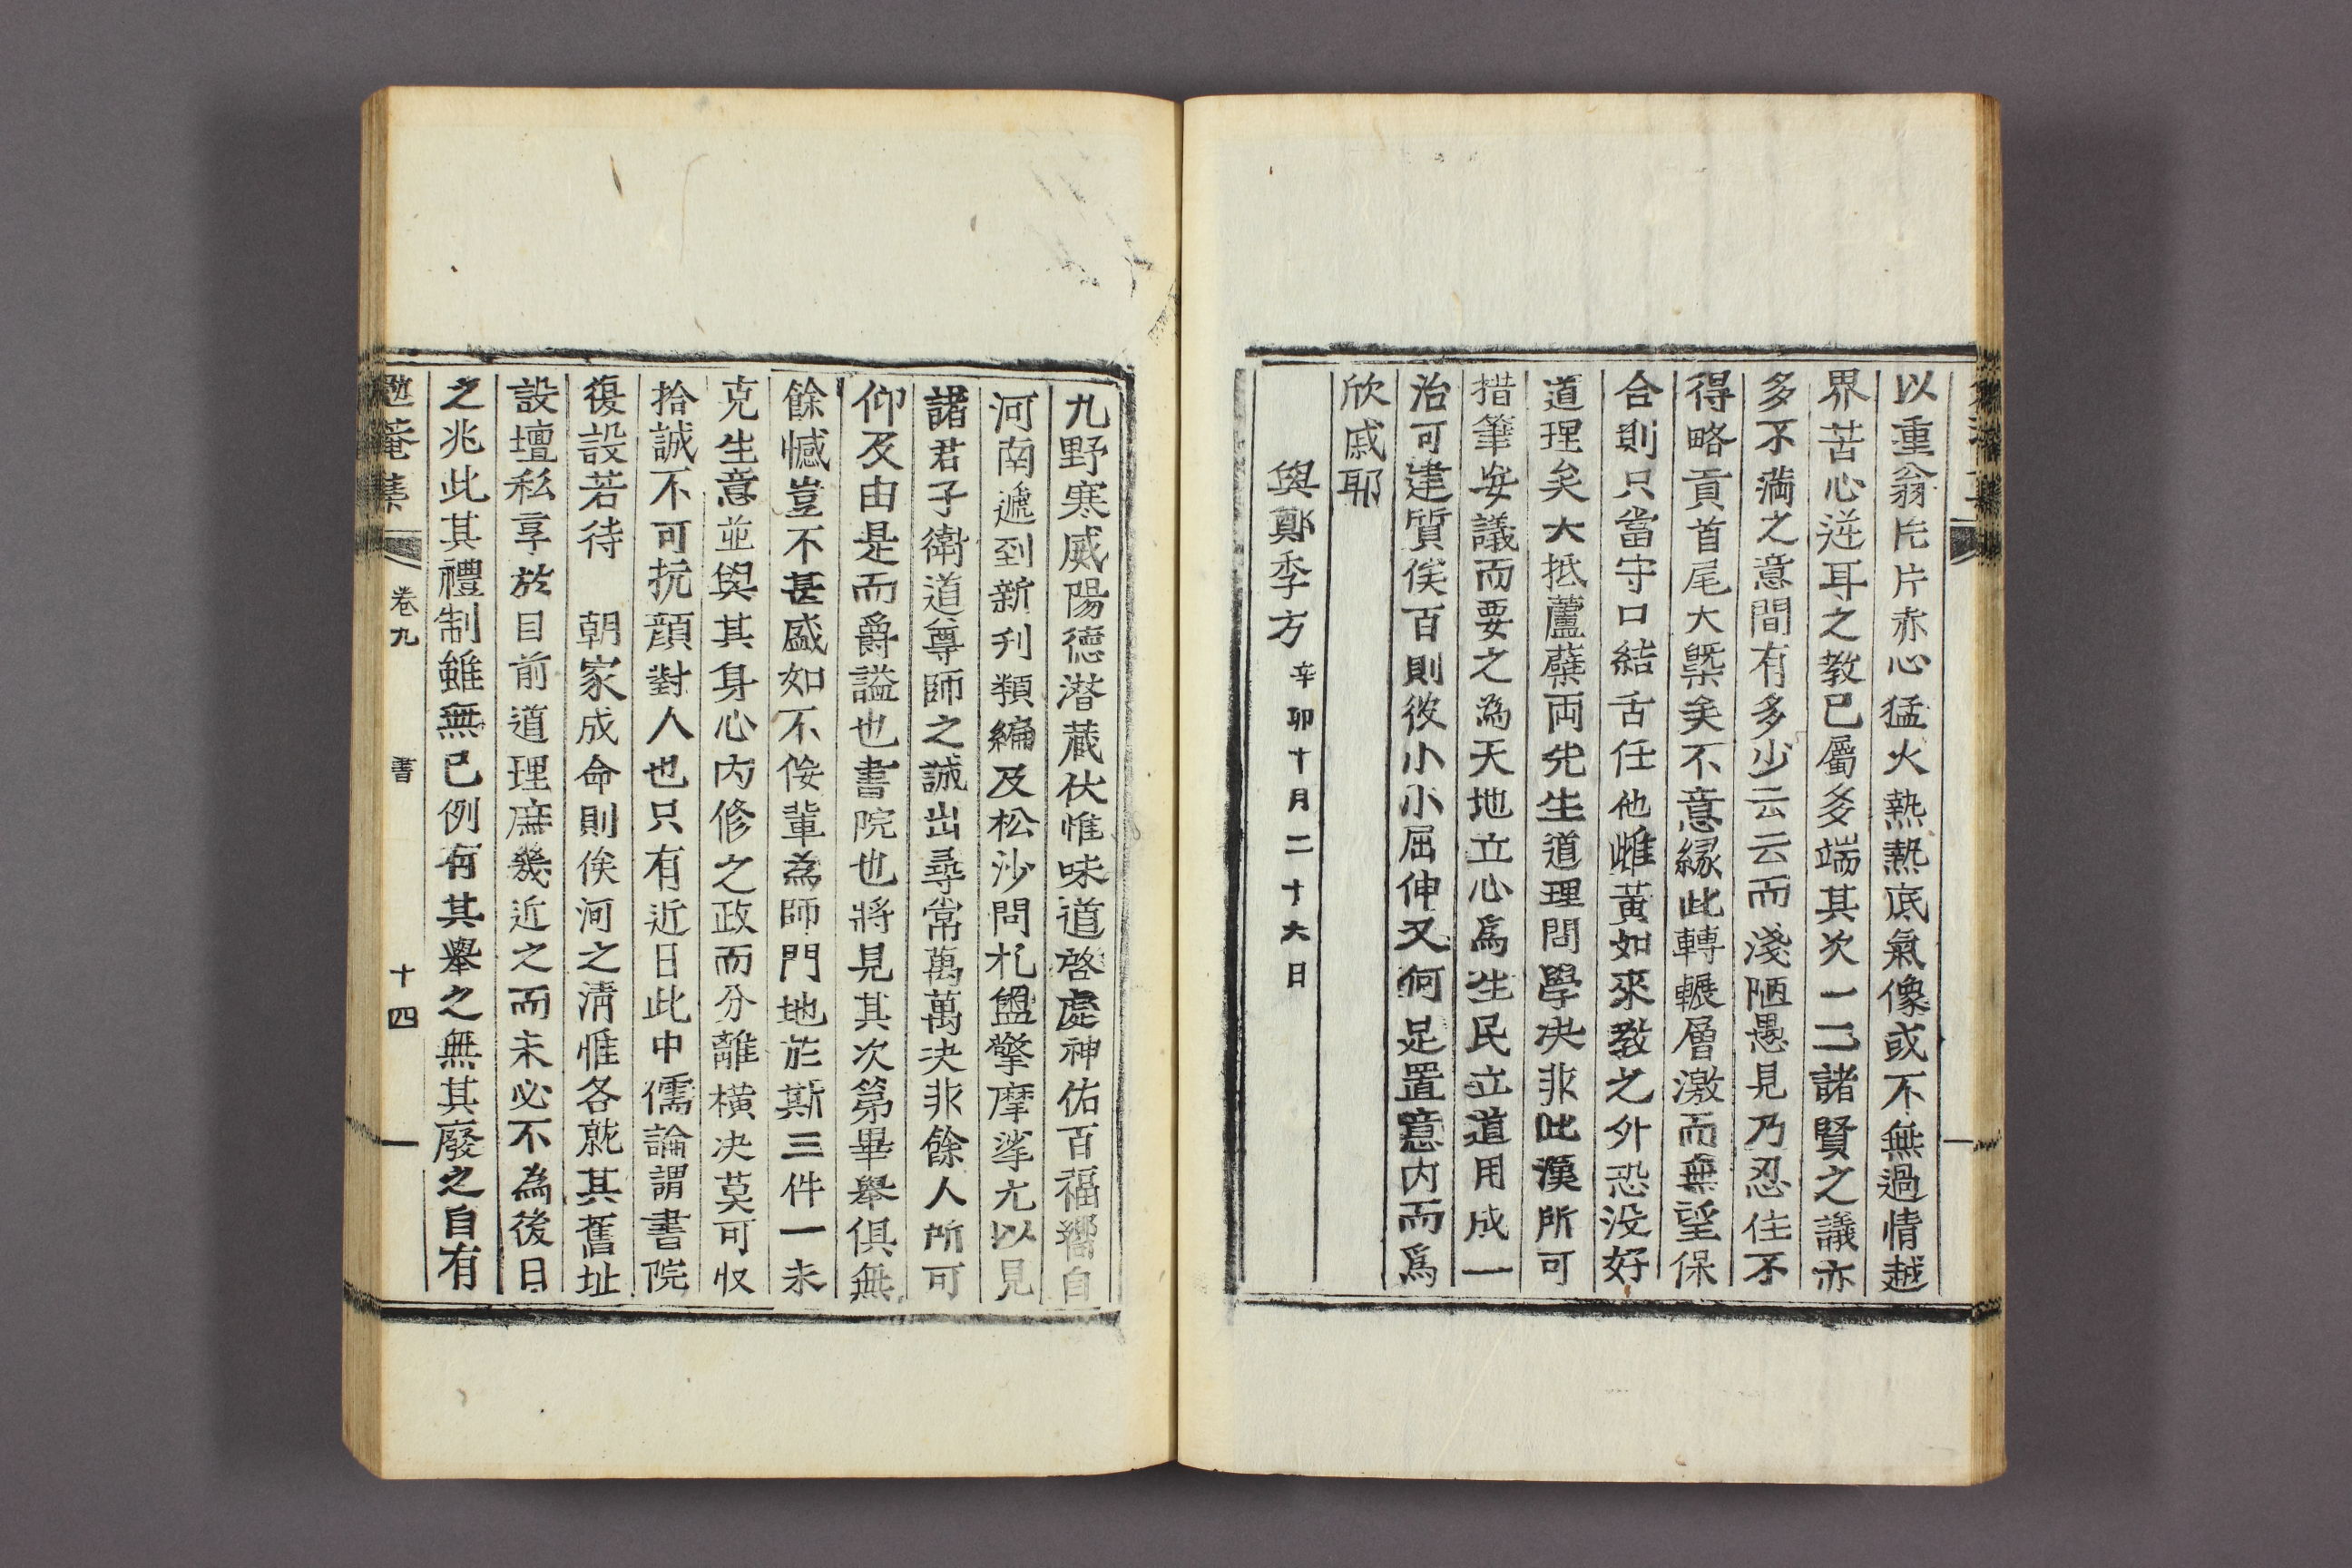 以重翁片片赤心猛火熱熱底氣像或不無過情越
界苦心逆耳之教已屬多端其次一二諸賢之議亦
多不滿之意間有多少云云而淺陋愚見乃忍住不
得略貢首尾大槩矣不意緣此轉輾層激而無望保
合則只當守口結舌任他雌黃如來教之外恐没好
道理矣大抵蘆蘗両先生道理問學決非此漢所可
措筆妄議而要之為天地立心爲生民立道用成一
治可建質俟百則彼小小屈伸又何足置意内而爲
欣戚耶
與鄭季方辛卯十月二十六日
九野寒威陽德潜蔵伏惟味道啓處神佑百福嚮自
河南遞到新刋類編及松沙問札盥擎摩挲尤以見
諸君子衛道尊師之誠出尋常萬萬決非餘人所可
仰及由是而爵謚也書院也將見其次第畢舉俱無
餘憾豈不甚盛如不侫輩為師門地於斯三件一未
克生意並與其身心内修之政而分離橫决莫可収
拾誠不可抗顔對人也只有近日此中儒論謂書院
復設若待　朝家成命則俟河之淸惟各就其舊址
設壇私享於目前道理庶幾近之而未必不為後日
之兆此其禮制雖無已例有其舉之無其廢之自有
勉菴集　卷九　書　十四